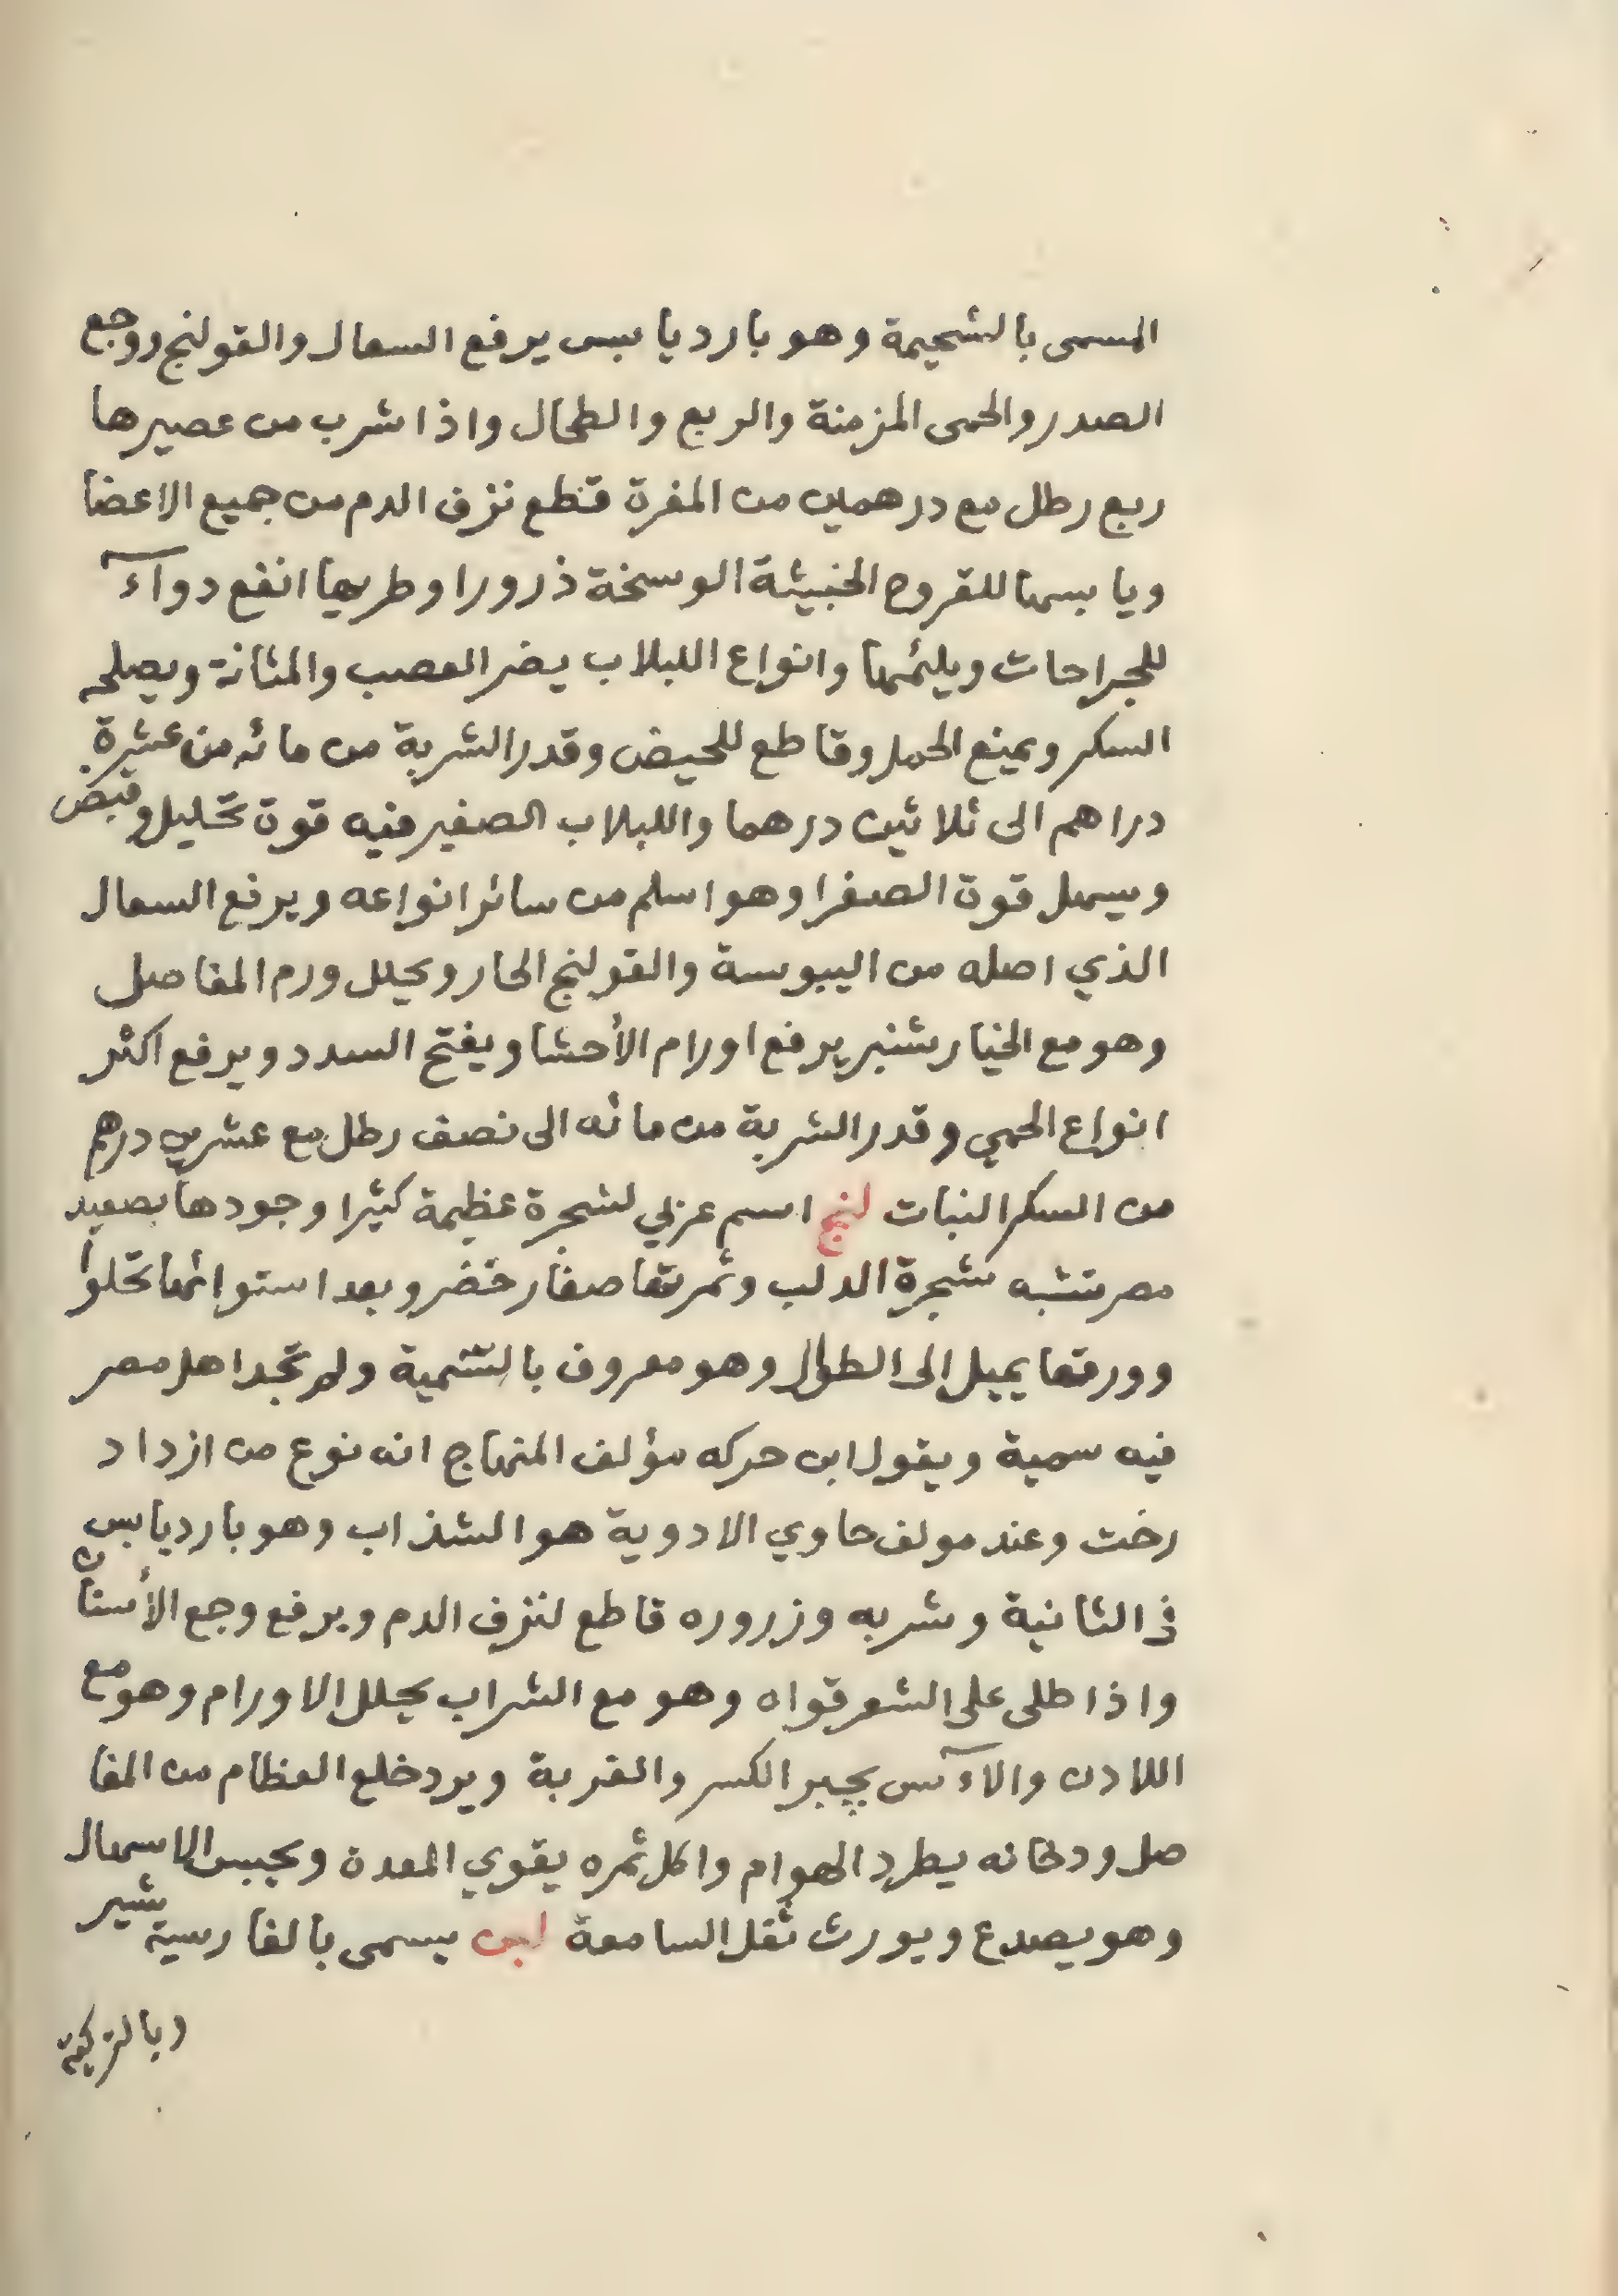 المسمى بالشحيمة وهو بارد يابس يرفع السعال والقولنج ووجع
الصدر والحمى المزمنة والربع والطحال واذا شرب من عصيرها
ربع رطل مع درهمين من المغرة قطع نزف الدم من جميع الاعضا
ويابسها للقروح الخبيثة الوسخة ذرورا وطريها انفع دوآء
للجراحات ويلئمها وانواع اللبلاب يضر العصب والمثانة ويصلحه
السكر ويمنع الحمل وقاطع للحيض وقدر الشربة من مائه من عشرة
دراهم الى ثلاثين درهما واللبلاب الصغير فيه قوة تحليل وقبض
ويسهل قوة الصفرا وهو اسلم من سائر انواعه ويرفع السعال
الذي اصله من اليبوسة والقولنج الحار ويحلل ورم المفاصل
وهو مع الخيار شنبر يرفع اورام الأحشا ويفتح السدد ويرفع اكثر
انواع الحمي وقدر الشربة من مائه الى نصف رطل مع عشرين درهم
من السكر النبات لنج اسم عزبي لشجرة عظيمة كثيرا وجودها بصعيد
مصر تشبه شجرة الدلب وثمرتها صغار خضر وبعد استوائها تحلوا
وورقها يميل الى الطول وهو معروف بالتسمية ولم تجد اهل مصر
فيه سمية ويقول ابن حركه مؤلف المنهاج انه نوع من ازداد
رخت وعند مولف حاوي الادوية هو الشذاب وهو بارد يابس
في الثانية وشربه وزروره قاطع لنزف الدم ويرفع وجع الأسنان
واذا طلى على الشعر قواه وهو مع الشراب يحلل الاورام وهو مع
اللادن والاآس يجبر الكسر والضربة ويرد خلع العظام من المفا
صل ودخانه يطرد الهوام واكل ثمره يقوي المعدة ويحبس الاسهال
وهو يصدع ويورث ثقل السامعة لبن يسمى بالفارسية شير
وبالتركية